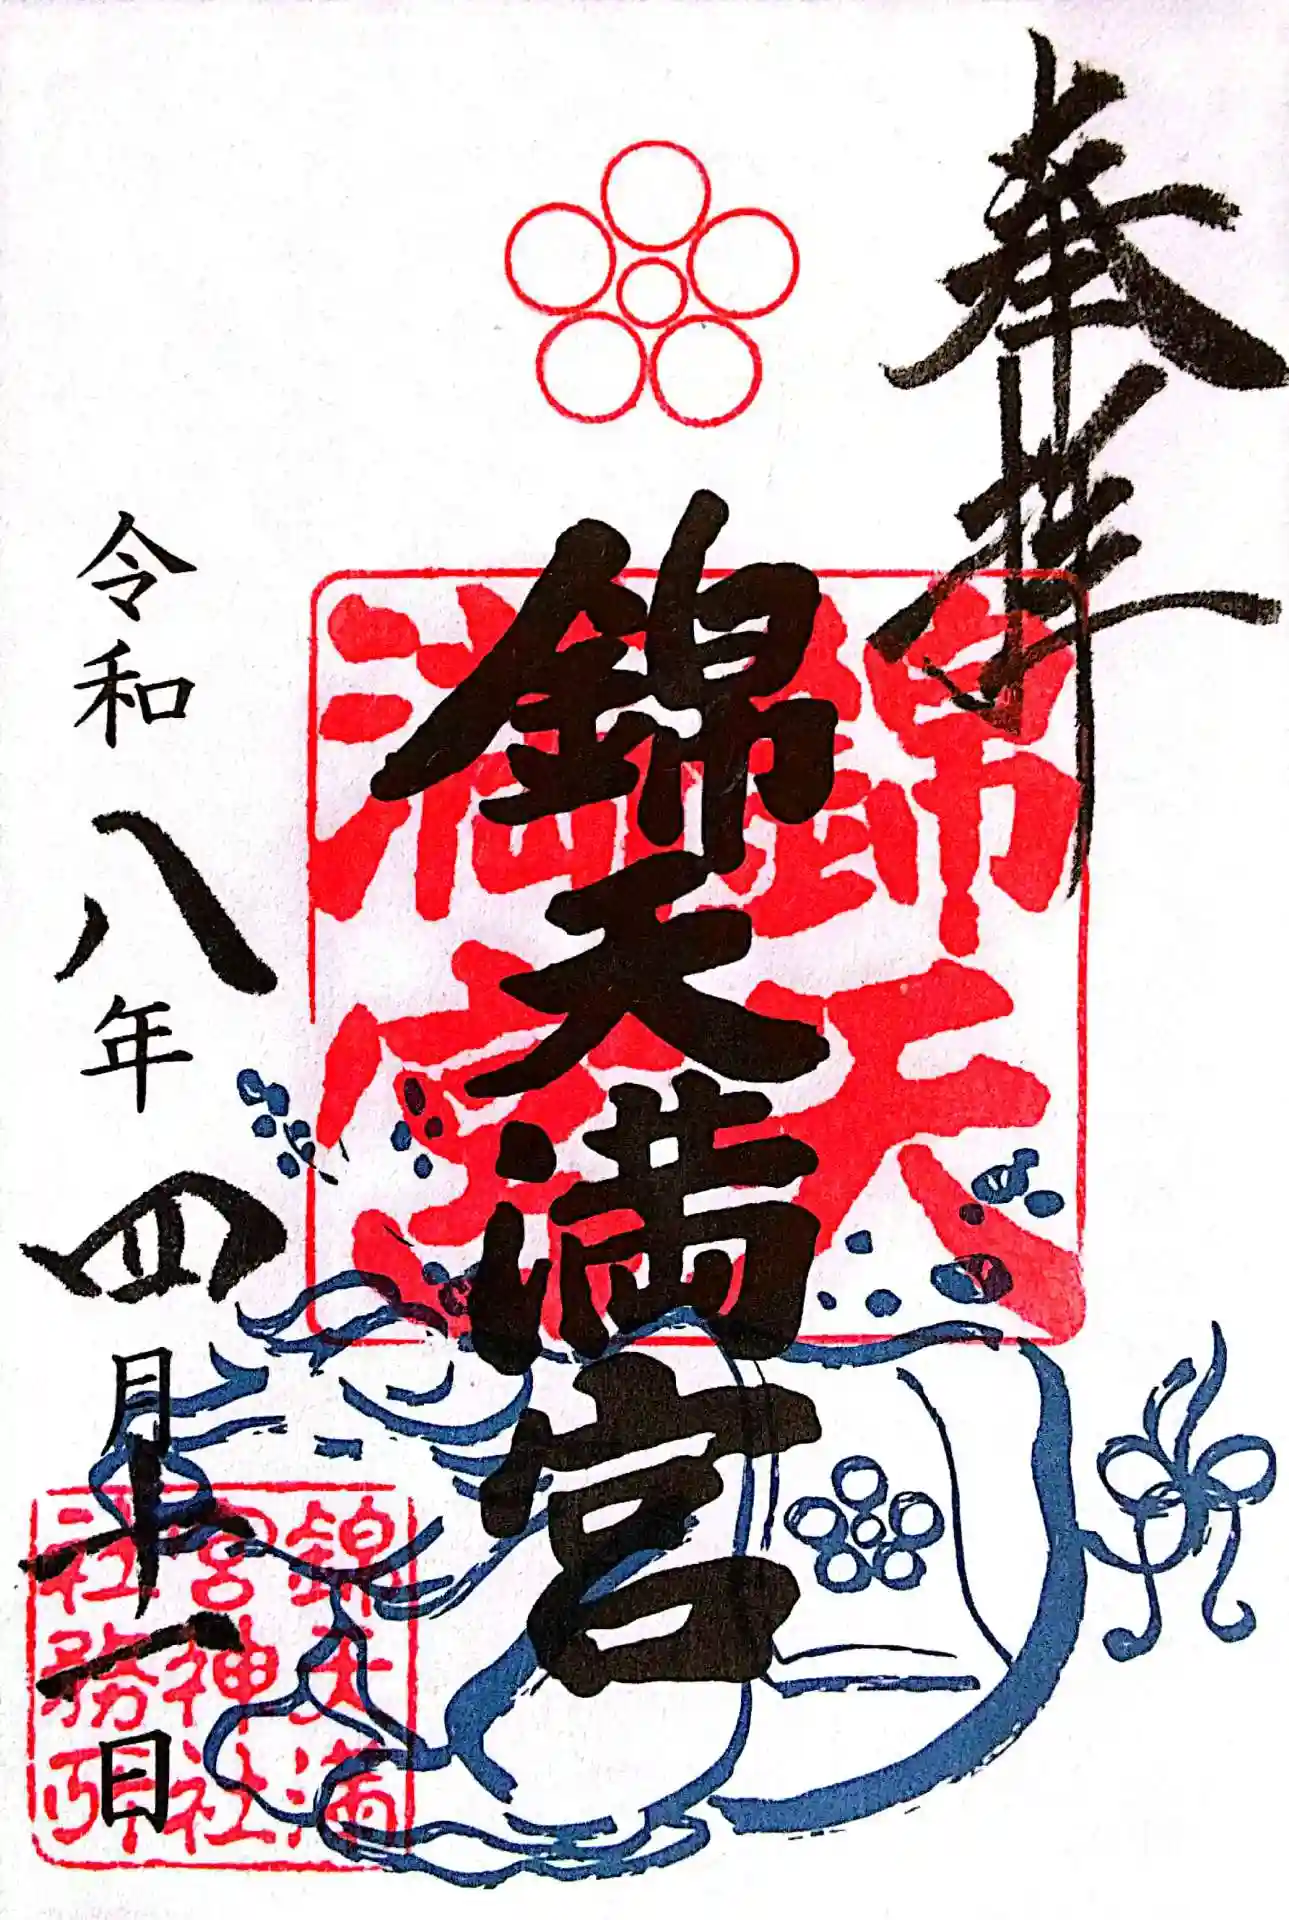 奉拝
錦天満宮
錦天
満宮
令和八年四月十一日
錦天満
宮神社
社務所